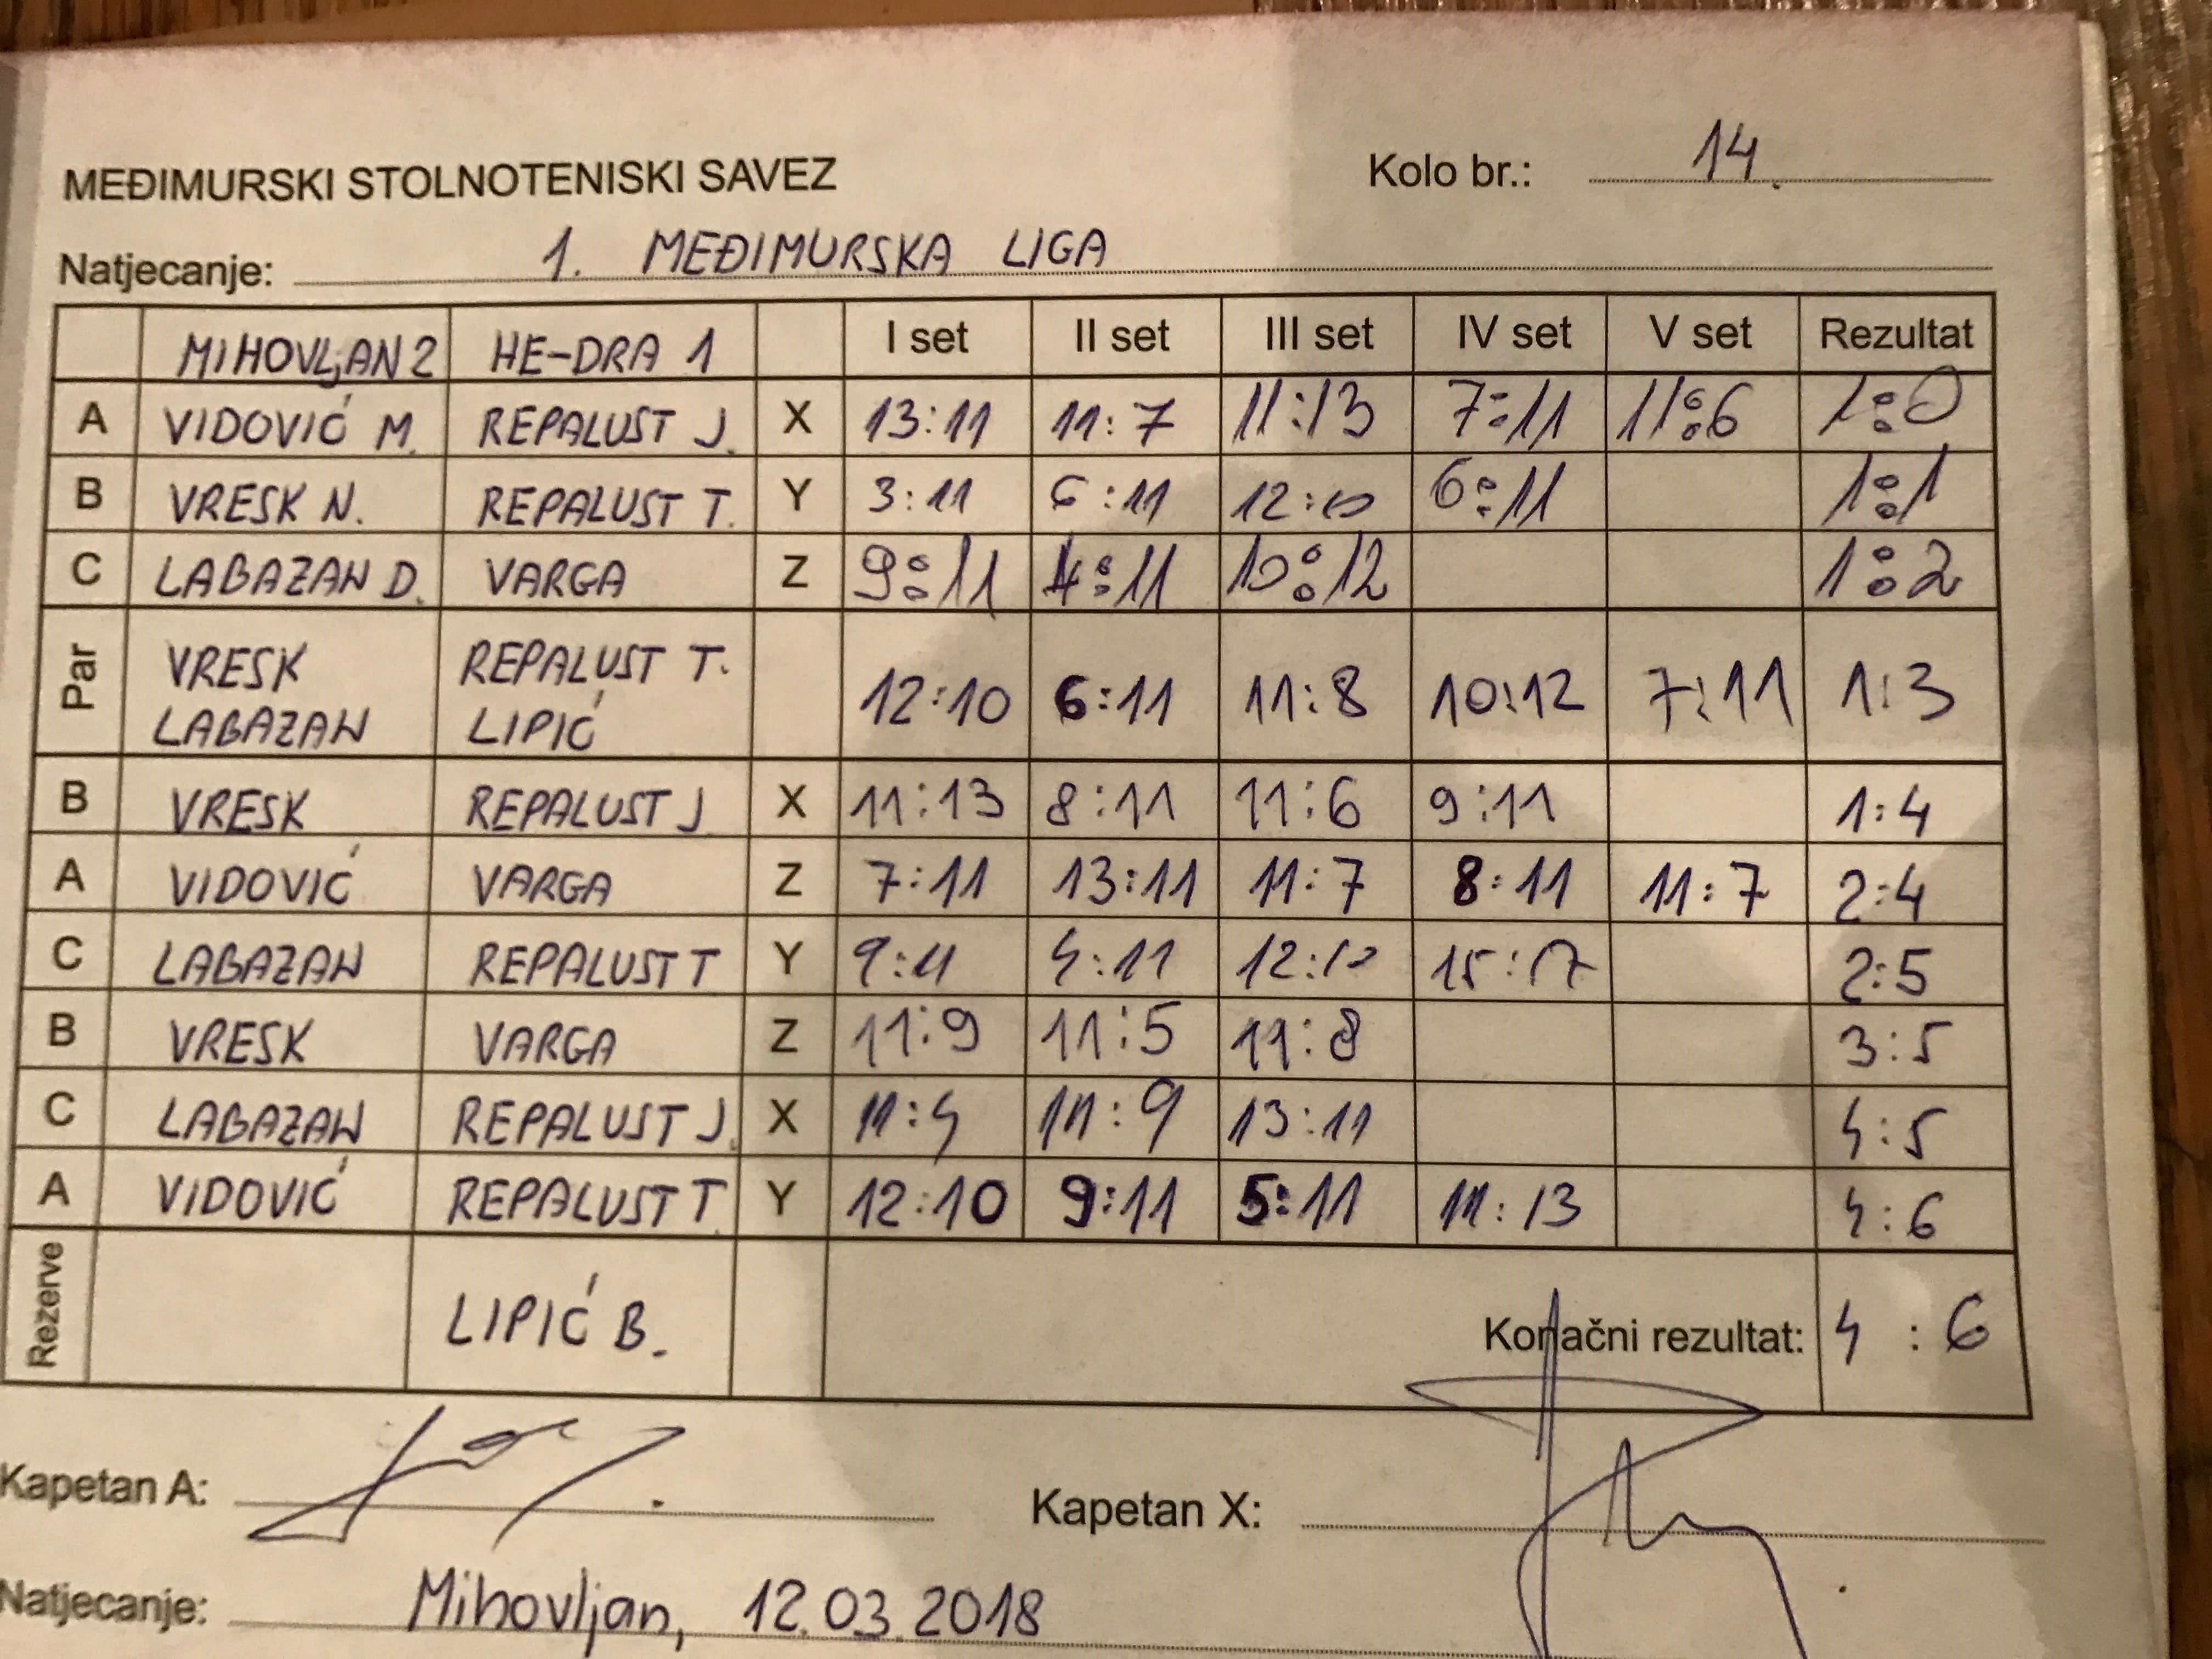 MEĐIMURSKI STOLNOTENISKI SAVEZ Kolo br.: 14.
Natjecanje: 1. MEĐIMURSKA LIGA
MIHOVLJAN 2 HE-DRA 1 I set II set III set IV set V set Rezultat
A VIDOVIĆ M. REPALUST J. X 13:11 11:7 11:13 7:11 11:6 1:0
B VRESK N. REPALUST T. Y 3:11 6:11 12:10 6:11 1:1
C LABAZAN D. VARGA Z 9:11 4:11 10:12 1:2
Par VRESK REPALUST T. 12:10 6:11 11:8 10:12 7:11 1:3
LABAZAN LIPIĆ
B VRESK REPALUST J X 11:13 8:11 11:6 9:11 1:4
A VIDOVIĆ VARGA Z 7:11 13:11 11:7 8:11 11:7 2:4
C LABAZAN REPALUST T Y 9:11 4:11 12:10 15:17 2:5
B VRESK VARGA Z 11:9 11:5 11:8 3:5
C LABAZAN REPALUST J. X 11:4 11:9 13:11 4:5
A VIDOVIĆ REPALUST T. Y 12:10 9:11 5:11 11:13 4:6
Rezerve LIPIĆ B. Konačni rezultat: 4 : 6
Kapetan A: Kapetan X:
Natjecanje: Mihovljan, 12.03.2018